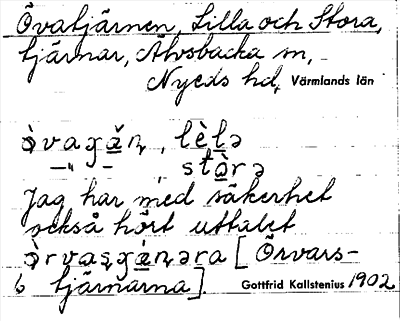 Övatjärnen, Lilla och Stora,
tjärnar, Älvsbacka sn,
Nyeds hd, Värmlands län
òvaɣæ̆ṇ, lèlə
—"—, stòrə
Jag har med säkerhet
också hört uttalet
òrvaṣɡæ̀ṇəra [Örvars-
tjärnarna]. Gottfrid Kallstenius 1902